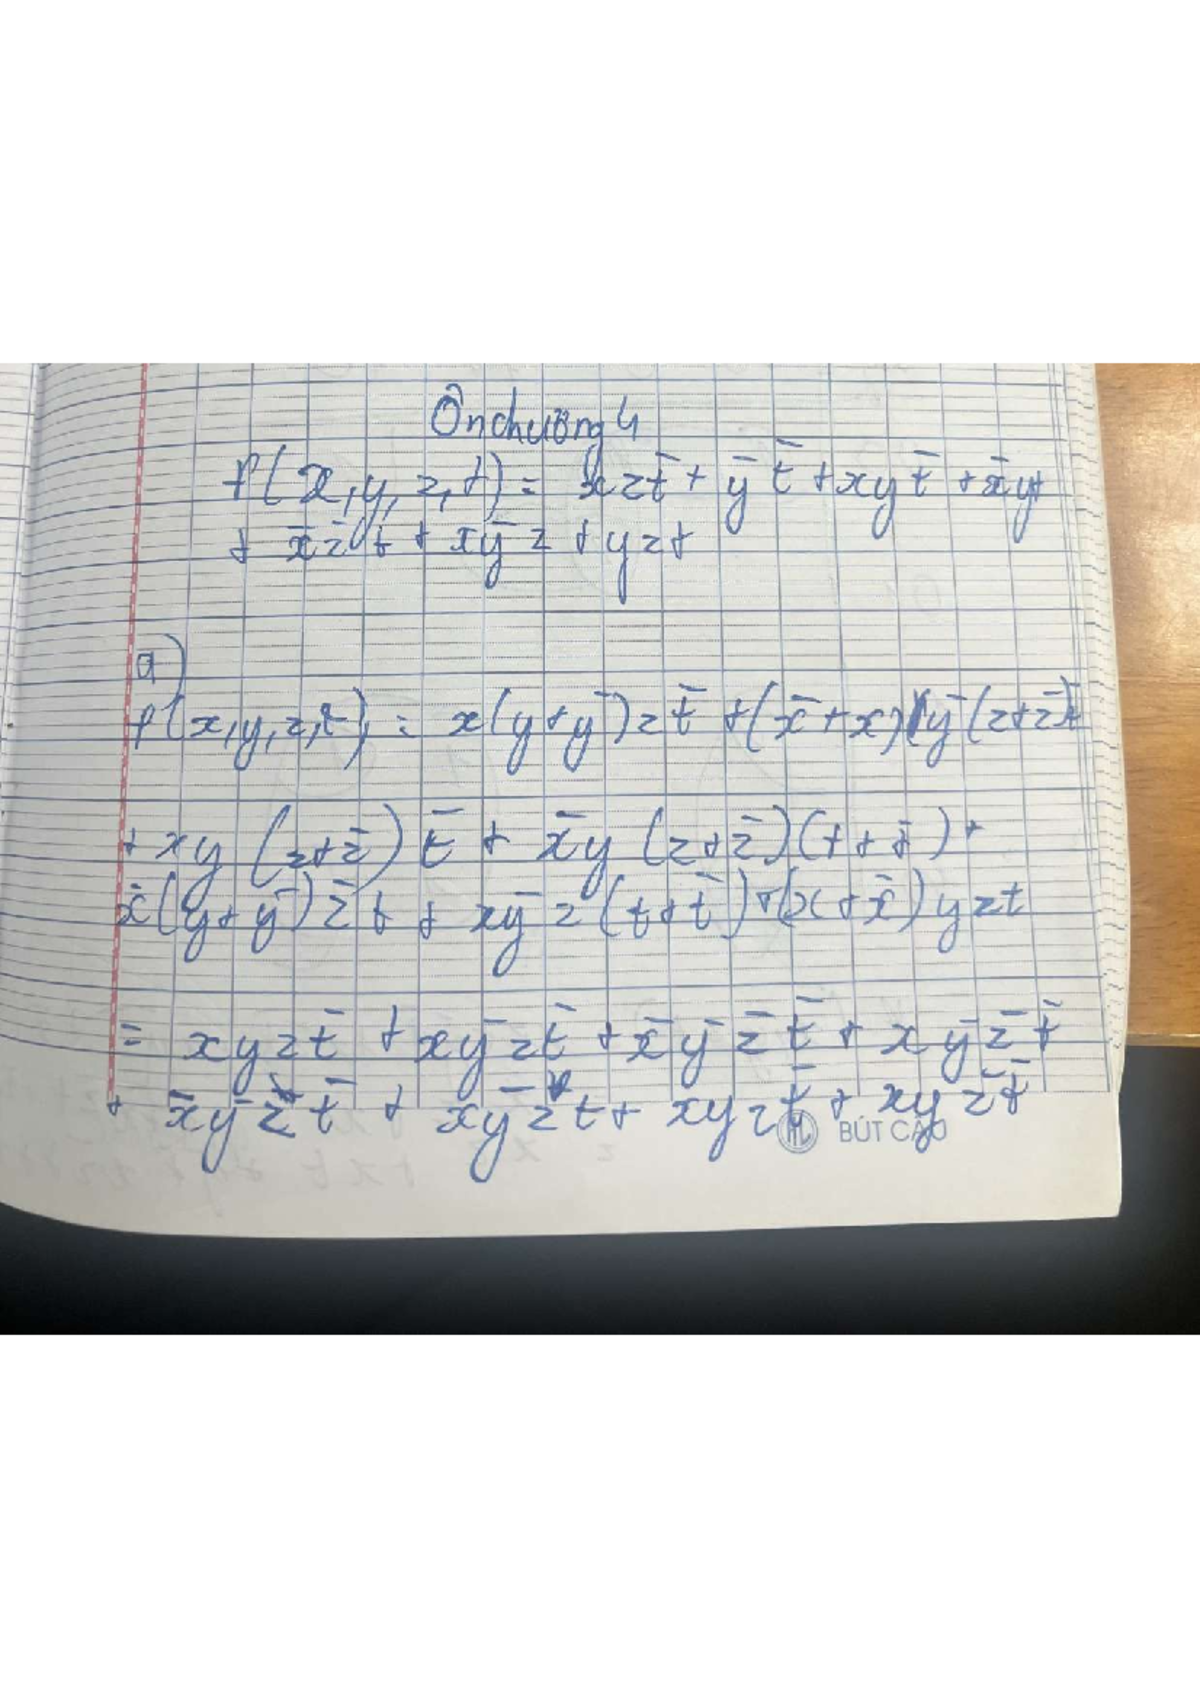 Ôn chương 4
f(x,y,z,t) = xzt̄ + ȳ t̄ + xyt̄ + x̄y
+ x̄z̄t + xȳz + yzt
a)
f(x,y,z,t) = x(y+ȳ)zt̄ + (x̄+x)ȳ(z+z̄)t̄
+ xy(z+z̄)t̄ + x̄y(z+z̄)(t+t̄) +
x̄(y+ȳ)z̄t + xȳz(t+t̄) + (x+x̄)yzt
= xyzt̄ + xȳzt̄ + x̄ȳz̄t̄ + xȳz̄t̄
+ x̄ȳzt̄ + xȳzt + xyzt̄ + xyz̄t̄
BÚT CAO